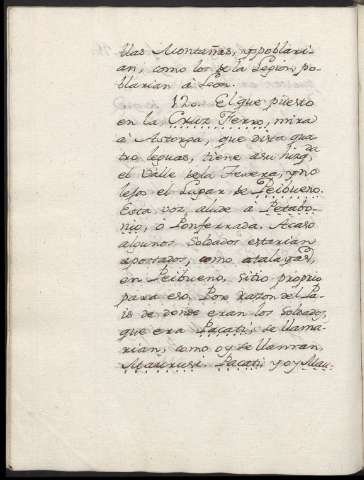 llas Montañas, y poblari-
an, como los de la Legion, po-
blarian à Leon.
120. El que puesto
en la Cruz Ferro, mira
à Astorga, que dista qua-
tro leguas, tiene à su izqda
el Valle de la Tevera, y no
lejos el Lugar de Peibueno.
Esta voz, alude à Petabo-
nio, ò Ponferrada. Acaso
algunos Soldados estarian
apostados, como atalayas,
en Peibueno, sitio proprio
para eso. Por razon del Pa-
is de donde eran los Soldados,
que era Pacatis, se llama-
rian, como oy se llaman,
Maurusi. Pacatis y oy Mau-